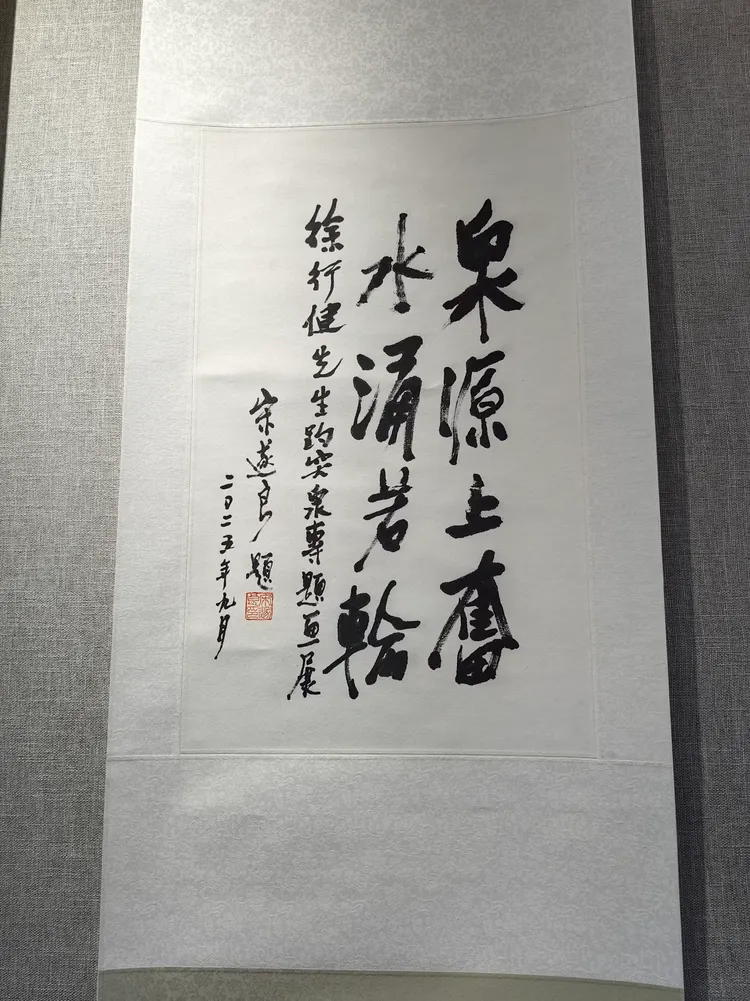 泉源上奮
水涌若輪
徐行健先生趵突泉專題畫展
宋遂良題
二〇二五年九月